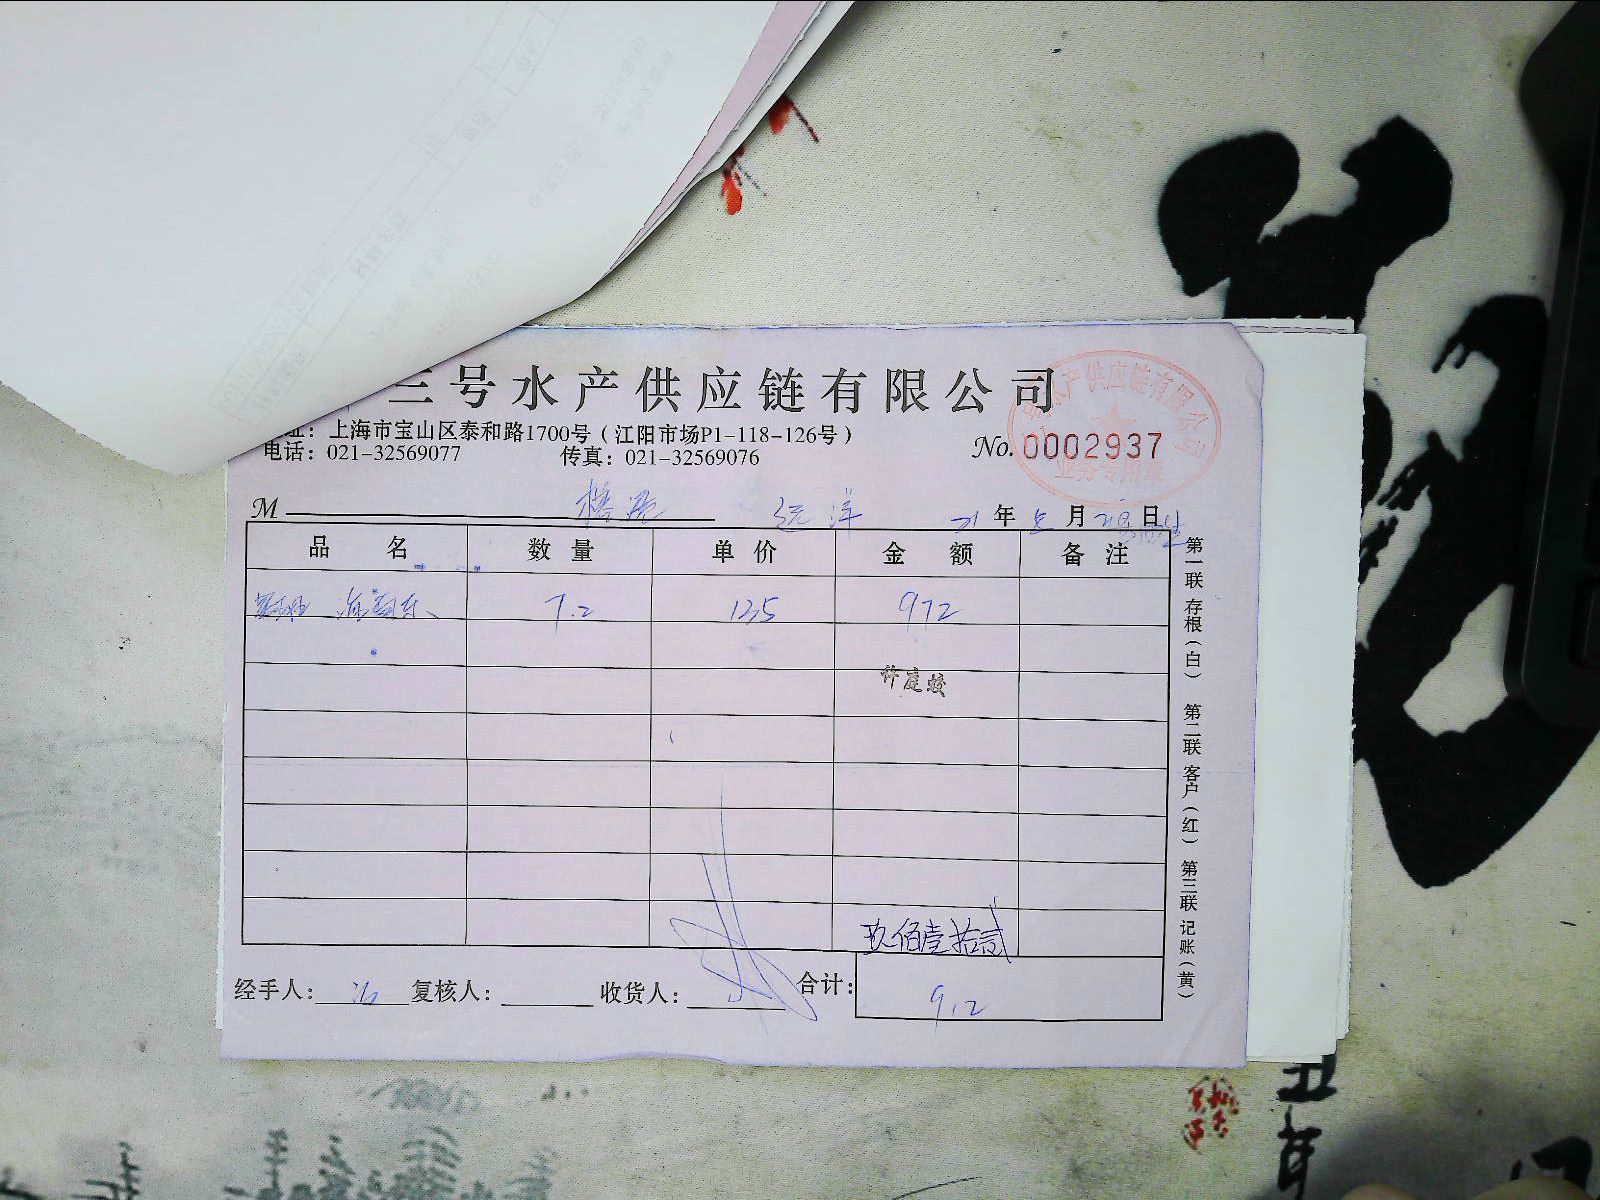 三号水产供应链有限公司
址：上海市宝山区泰和路1700号（江阳市场P1-118-126号）
电话：021-32569077 传真：021-32569076
No.0002937
水产供应链有限公司
业务专用章
M 远洋 21年 月 日
品名 数量 单价 金额 备注
7.2 135 972
许庭蛟
玖佰壹拾贰
经手人： 复核人： 收货人： 合计： 912
第一联存根（白） 第二联客户（红） 第三联记账（黄）